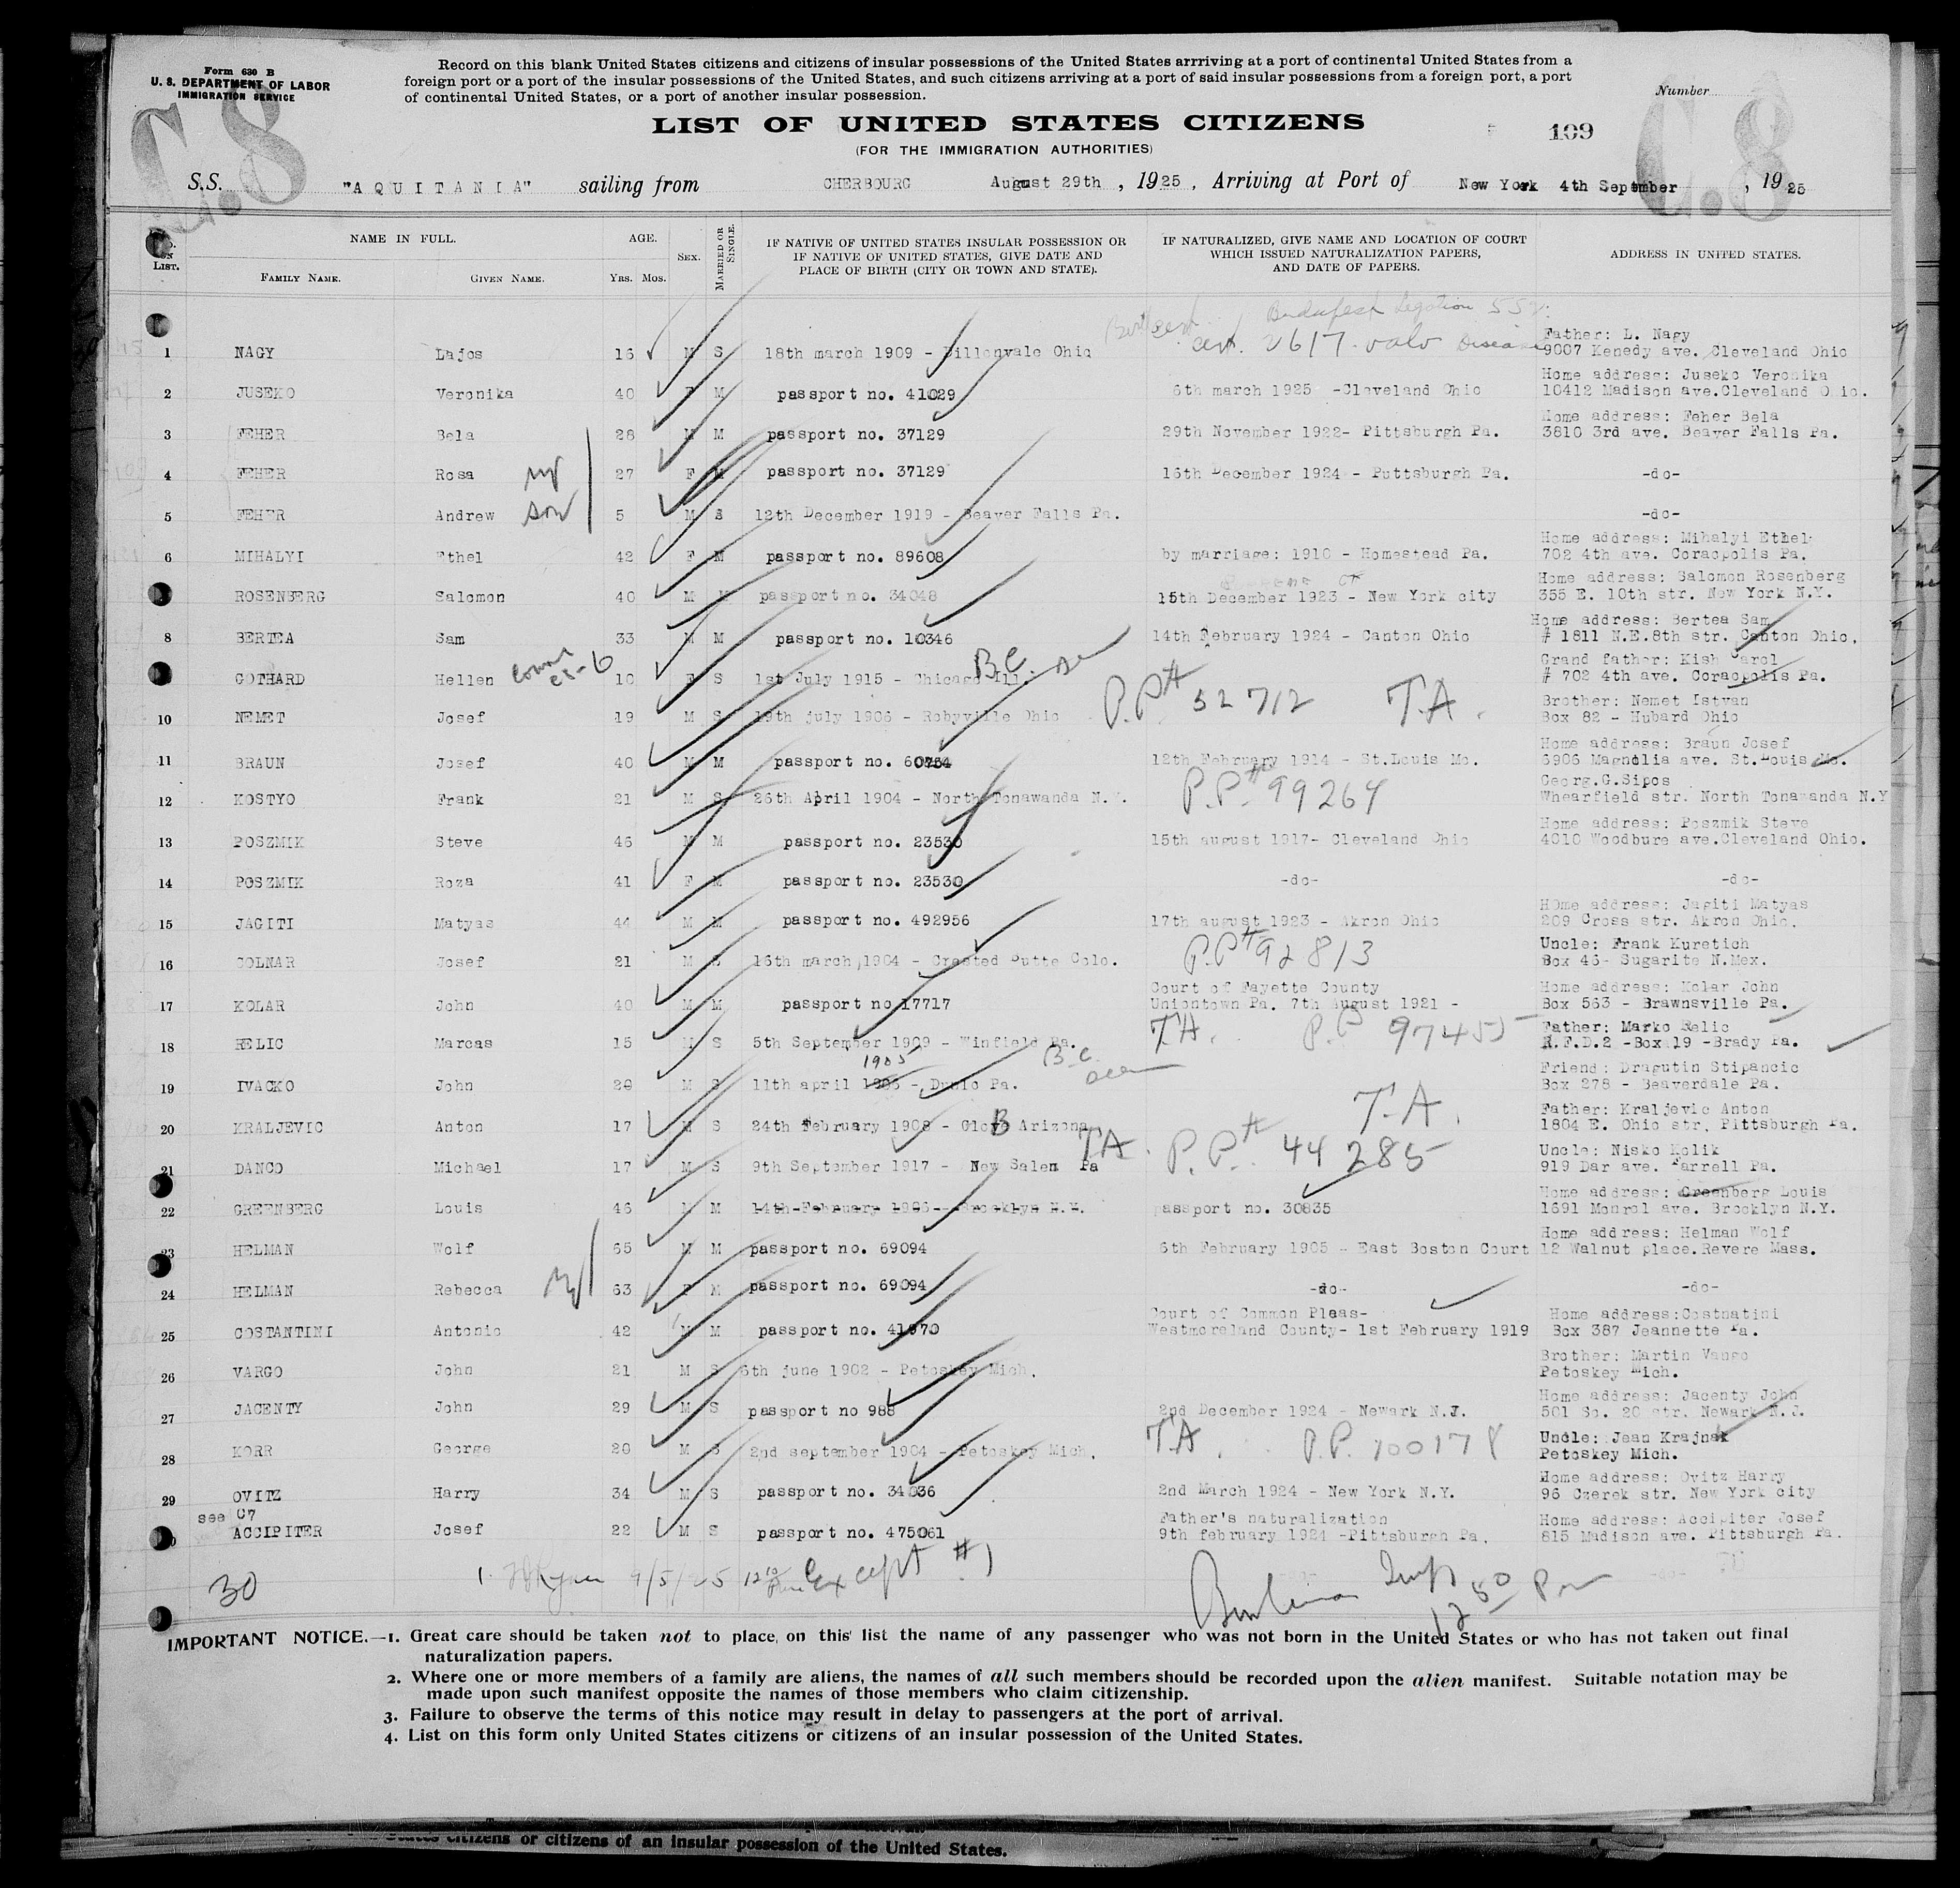 Form 630 B
U. S. DEPARTMENT OF LABOR
IMMIGRATION SERVICE
Record on this blank United States citizens and citizens of insular possessions of the United States arrriving at a port of continental United States from a
foreign port or a port of the insular possessions of the United States, and such citizens arriving at a port of said insular possessions from a foreign port, a port
of continental United States, or a port of another insular possession.
Number
C.8
C.8
LIST OF UNITED STATES CITIZENS
109
(FOR THE IMMIGRATION AUTHORITIES)
S.S. "AQUITANIA" sailing from CHERBOURG August 29th, 1925, Arriving at Port of New York 4th September, 1925
No. ON LIST.
NAME IN FULL.
FAMILY NAME. GIVEN NAME.
AGE.
YRS. MOS.
SEX.
MARRIED OR SINGLE.
IF NATIVE OF UNITED STATES INSULAR POSSESSION OR
IF NATIVE OF UNITED STATES, GIVE DATE AND
PLACE OF BIRTH (CITY OR TOWN AND STATE).
IF NATURALIZED, GIVE NAME AND LOCATION OF COURT
WHICH ISSUED NATURALIZATION PAPERS,
AND DATE OF PAPERS.
ADDRESS IN UNITED STATES.
Budapest Legation
cert. 2617. valv Disease
Father: L. Nagy
1 NAGY Lajos 16 M S 18th march 1909 - Dillonvale Ohio 9007 Kenedy ave. Cleveland Ohio
Home address: Juseko Veronika
2 JUSEKO Veronika 40 F M passport no. 41029 6th march 1925 -Cleveland Ohio 10412 Madison ave.Cleveland Ohio.
Home address: Feher Bela
3 FEHER Bela 28 M M passport no. 37129 29th November 1922- Pittsburgh Pa. 3810 3rd ave. Beaver Falls Pa.
4 FEHER Rosa wf 27 F M passport no. 37129 16th December 1924 - Puttsburgh Pa. -do-
5 FEHER Andrew son 5 M S 12th December 1919 - Beaver Falls Pa. -do-
Home address: Mihalyi Ethel
6 MIHALYI Ethel 42 F M passport no. 89608 by marriage: 1910 - Homestead Pa. 702 4th ave. Coraopolis Pa.
Home address: Salomon Rosenberg
ROSENBERG Salomon 40 M M passport no. 34048 15th December 1923 - New York city 355 E. 10th str. New York N.Y.
Home address: Bertea Sam
8 BERTEA Sam 33 M M passport no. 10346 14th February 1924 - Canton Ohio # 1811 N.E.8th str. Canton Ohio.
Grand father: Kish Carol
GOTHARD Hellen 10 F S 1st July 1915 - Chicago Ill. B.C. # 702 4th ave. Coraopolis Pa.
P.P# 52712 T.A.
Brother: Nemet Istvan
10 NEMET Josef 19 M S 19th july 1906 - Robyville Ohio Box 82 - Hubard Ohio
Home address: Braun Josef
11 BRAUN Josef 40 M M passport no. 60754 12th February 1914 - St.Louis Mo. 6906 Magnolia ave. St.Louis Mo.
P.P.# 99264
Georg.G.Sipos
12 KOSTYO Frank 21 M S 26th April 1904 - North Tonawanda N.Y. Whearfield str. North Tonawanda N.Y
Home address: Poszmik Steve
13 POSZMIK Steve 46 M M passport no. 23530 15th august 1917- Cleveland Ohio 4010 Woodbure ave.Cleveland Ohio.
14 POSZMIK Roza 41 F M passport no. 23530 -do- -do-
HOme address: Jagiti Matyas
15 JAGITI Matyas 44 M M passport no. 492956 17th august 1923 - Akron Ohio 209 Cross str. Akron Ohio.
P.P# 92813
Uncle: Frank Kuretich
16 COLNAR Josef 21 M S 16th march,1904 - Crested Butte Colo. Box 46- Sugarite N.Mex.
Court of Fayette County Home address: Kolar John
17 KOLAR John 40 M M passport no 17717 Uniontown Pa. 7th August 1921 - Box 563 - Brawnsville Pa.
T.A. P.P 97455
Father: Marko Relic
18 RELIC Marcas 15 M S 5th September 1909 - Winfield Pa. R.F.D.2 -Box 19 -Brady Pa.
1905 B.C.
Friend: Dragutin Stipancic
19 IVACKO John 20 M S 11th april - Dunlo Pa. Box 278 - Beaverdale Pa.
T.A.
Father: Kraljevic Anton
20 KRALJEVIC Anton 17 M S 24th February 1908 - Globe Arizona 1804 E. Ohio str, Pittsburgh Pa.
TA. P.P.# 44285
Uncle: Nisko Kolik
21 DANCO Michael 17 M S 9th September 1917 - New Salem Pa 919 Dar ave. Farrell Pa.
Home address: Greenberg Louis
22 GREENBERG Louis 46 M M 14th February 1906 - Brooklyn N.Y. passport no. 30835 1691 Monrol ave. Brooklyn N.Y.
Home address: Helman Wolf
23 HELMAN Wolf 65 M M passport no. 69094 6th February 1905 - East Boston Court 12 Walnut place.Revere Mass.
24 HELMAN Rebecca wf 63 F M passport no. 69094 -do- -do-
Court of Common Pleas- Home address:Costnatini
25 COSTANTINI Antonio 42 M M passport no. 41970 Westmoreland County- 1st February 1919 Box 387 Jeannette Pa.
Brother: Martin Vango
26 VARGO John 21 M S 6th june 1902 - Petoskey Mich. Petoskey Mich.
Home address: Jacenty John
27 JACENTY John 29 M S passport no 988 2nd December 1924 - Newark N.J. 501 So. 20 str. Newark N.J.
T.A. P.P. 100178
Uncle: Jean Krajnak
28 KORR George 20 M S 2nd september 1904 - Petoskey Mich. Petoskey Mich.
Home address: Ovitz Harry
29 OVITZ Harry 34 M S passport no. 34036 2nd March 1924 - New York N.Y. 96 Czerek str. New York city
see C7
Father's naturalization Home address: Accipiter Josef
ACCIPITER Josef 22 M S passport no. 475061 9th february 1924 -Pittsburgh Pa. 815 Madison ave. Pittsburgh Pa.
30 9/5/25 Except #1
Insp 12 50 Pm
IMPORTANT NOTICE.—1. Great care should be taken not to place on this list the name of any passenger who was not born in the United States or who has not taken out final
naturalization papers.
2. Where one or more members of a family are aliens, the names of all such members should be recorded upon the alien manifest. Suitable notation may be
made upon such manifest opposite the names of those members who claim citizenship.
3. Failure to observe the terms of this notice may result in delay to passengers at the port of arrival.
4. List on this form only United States citizens or citizens of an insular possession of the United States.
States citizens or citizens of an insular possession of the United States.